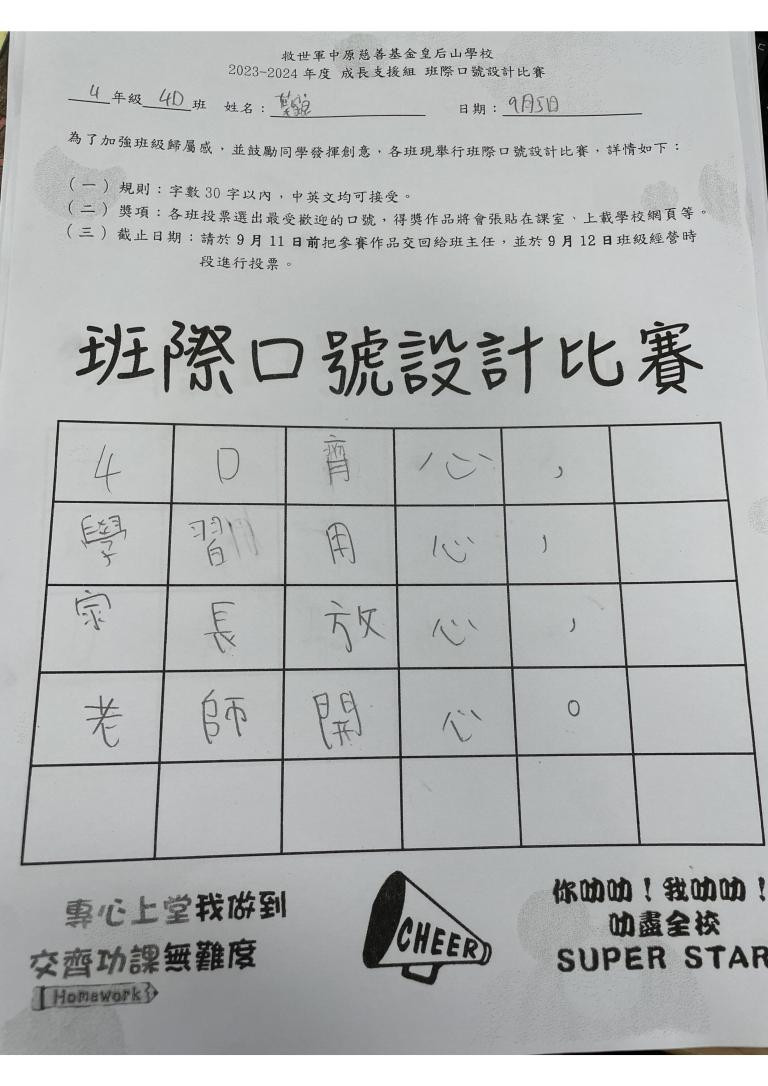 救世軍中原慈善基金皇后山學校
2023-2024 年度 成長支援組 班際口號設計比賽
4 年級 4D 班 姓名： 日期：9月5日
為了加強班級歸屬感，並鼓勵同學發揮創意，各班現舉行班際口號設計比賽，詳情如下：
（一）規則：字數 30 字以內，中英文均可接受。
（二）獎項：各班投票選出最受歡迎的口號，得獎作品將會張貼在課室、上載學校網頁等。
（三）截止日期：請於 9 月 11 日前把參賽作品交回給班主任，並於 9 月 12 日班級經營時
段進行投票。
班際口號設計比賽
4D齊心，
學習用心，
家長放心，
老師開心。
專心上堂我做到
交齊功課無難度
Homework
CHEER
你叻叻！我叻叻！
叻盡全校
SUPER STAR